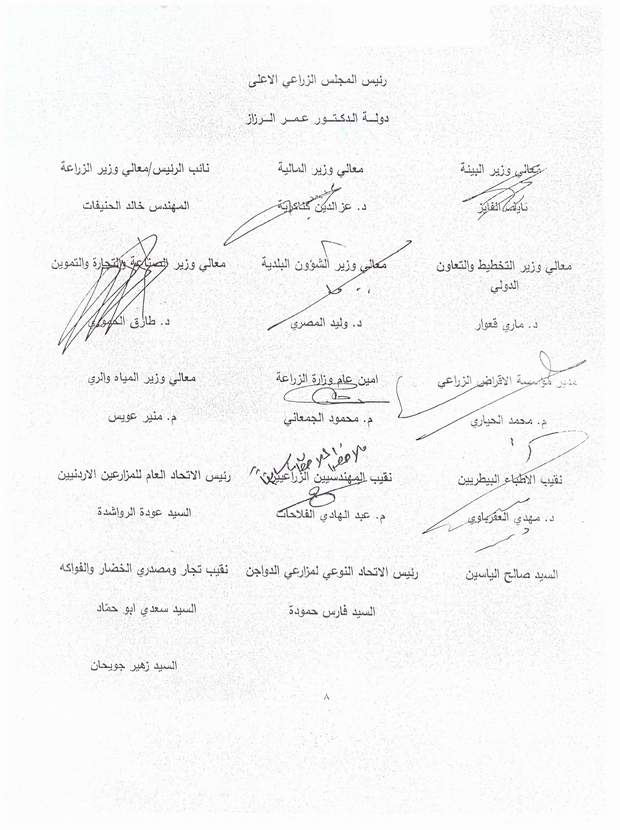 رئيس المجلس الزراعي الاعلى
دولـــة الدكتـــور عمـــر الـــرزاز
معالي وزير البيئة
معالي وزير المالية
نائب الرئيس/معالي وزير الزراعة
نايف الفايز
د. عز الدين كناكرية
المهندس خالد الحنيفات
معالي وزير التخطيط والتعاون
الدولي
معالي وزير الشؤون البلدية
معالي وزير الصناعة والتجارة والتموين
د. ماري قعوار
د. وليد المصري
د. طارق الحموري
مدير مؤسسة الاقراض الزراعي
امين عام وزارة الزراعة
معالي وزير المياه والري
م. محمد الحياري
م. محمود الجمعاني
م. منير عويس
نقيب الاطباء البيطريين
نقيب المهندسيين الزراعيين
رئيس الاتحاد العام للمزارعين الاردنيين
د. مهدي العقرباوي
م. عبد الهادي الفلاحات
السيد عودة الرواشدة
السيد صالح الياسين
رئيس الاتحاد النوعي لمزارعي الدواجن
نقيب تجار ومصدري الخضار والفواكه
السيد فارس حمودة
السيد سعدي ابو حمّاد
السيد زهير جويحان
٨